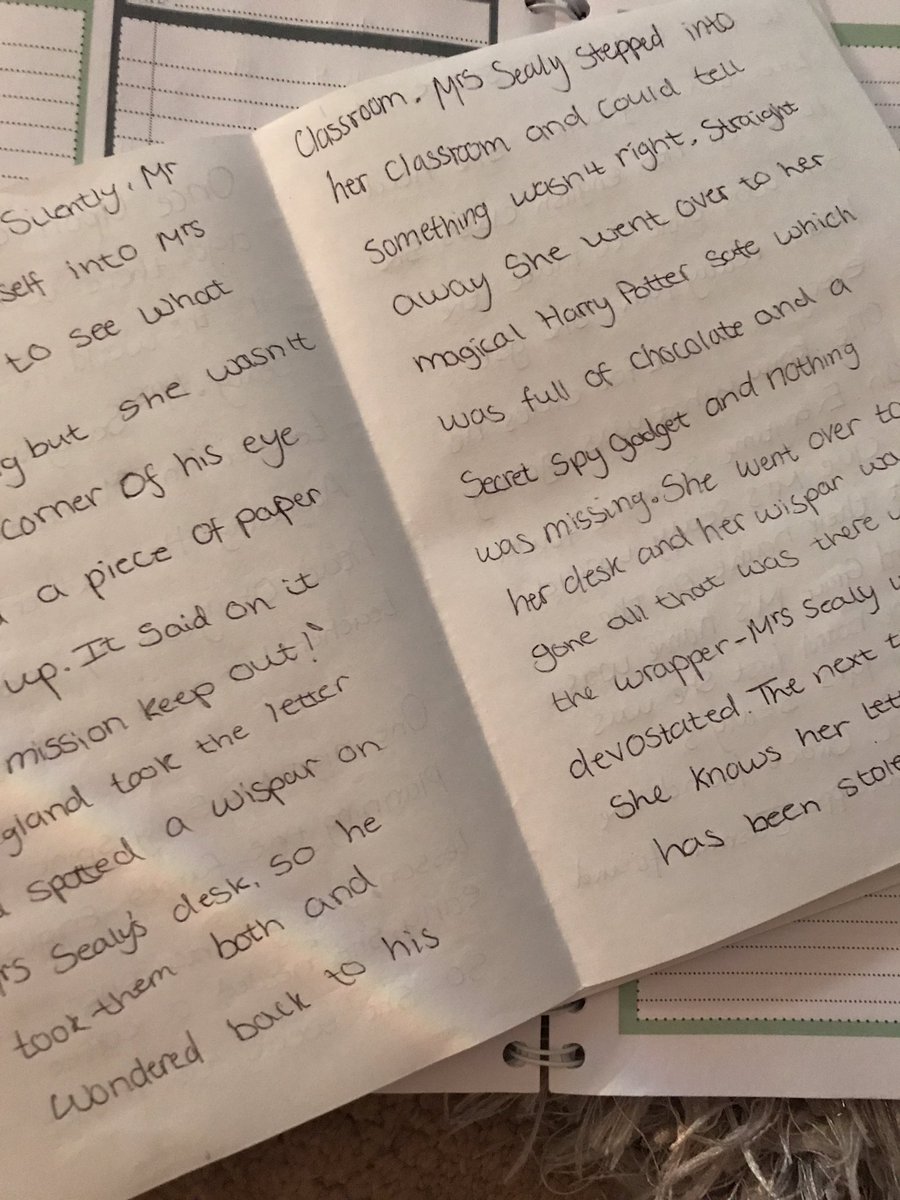 Silently. Mr
self into Mrs
to see whaat
but she wasn't
corner of his eye
a piece of paper
up. It said on it
mission keep out!"
took the letter
spotted a wispar on
Sealy's desk, so he
took them both and
wondered back to his
Classroom. Mrs Sealy stepped into
her classroom and could tell
something wasn't right. Straight
away she went over to her
magical Harry Potter safe which
was full of chocolate and a
Secret Spy Gadget and nothing
was missing. She went over to
her desk and her wispar
gone all that was there
the wrapper-Mrs Sealy
devostated. The next
she knows her
has been